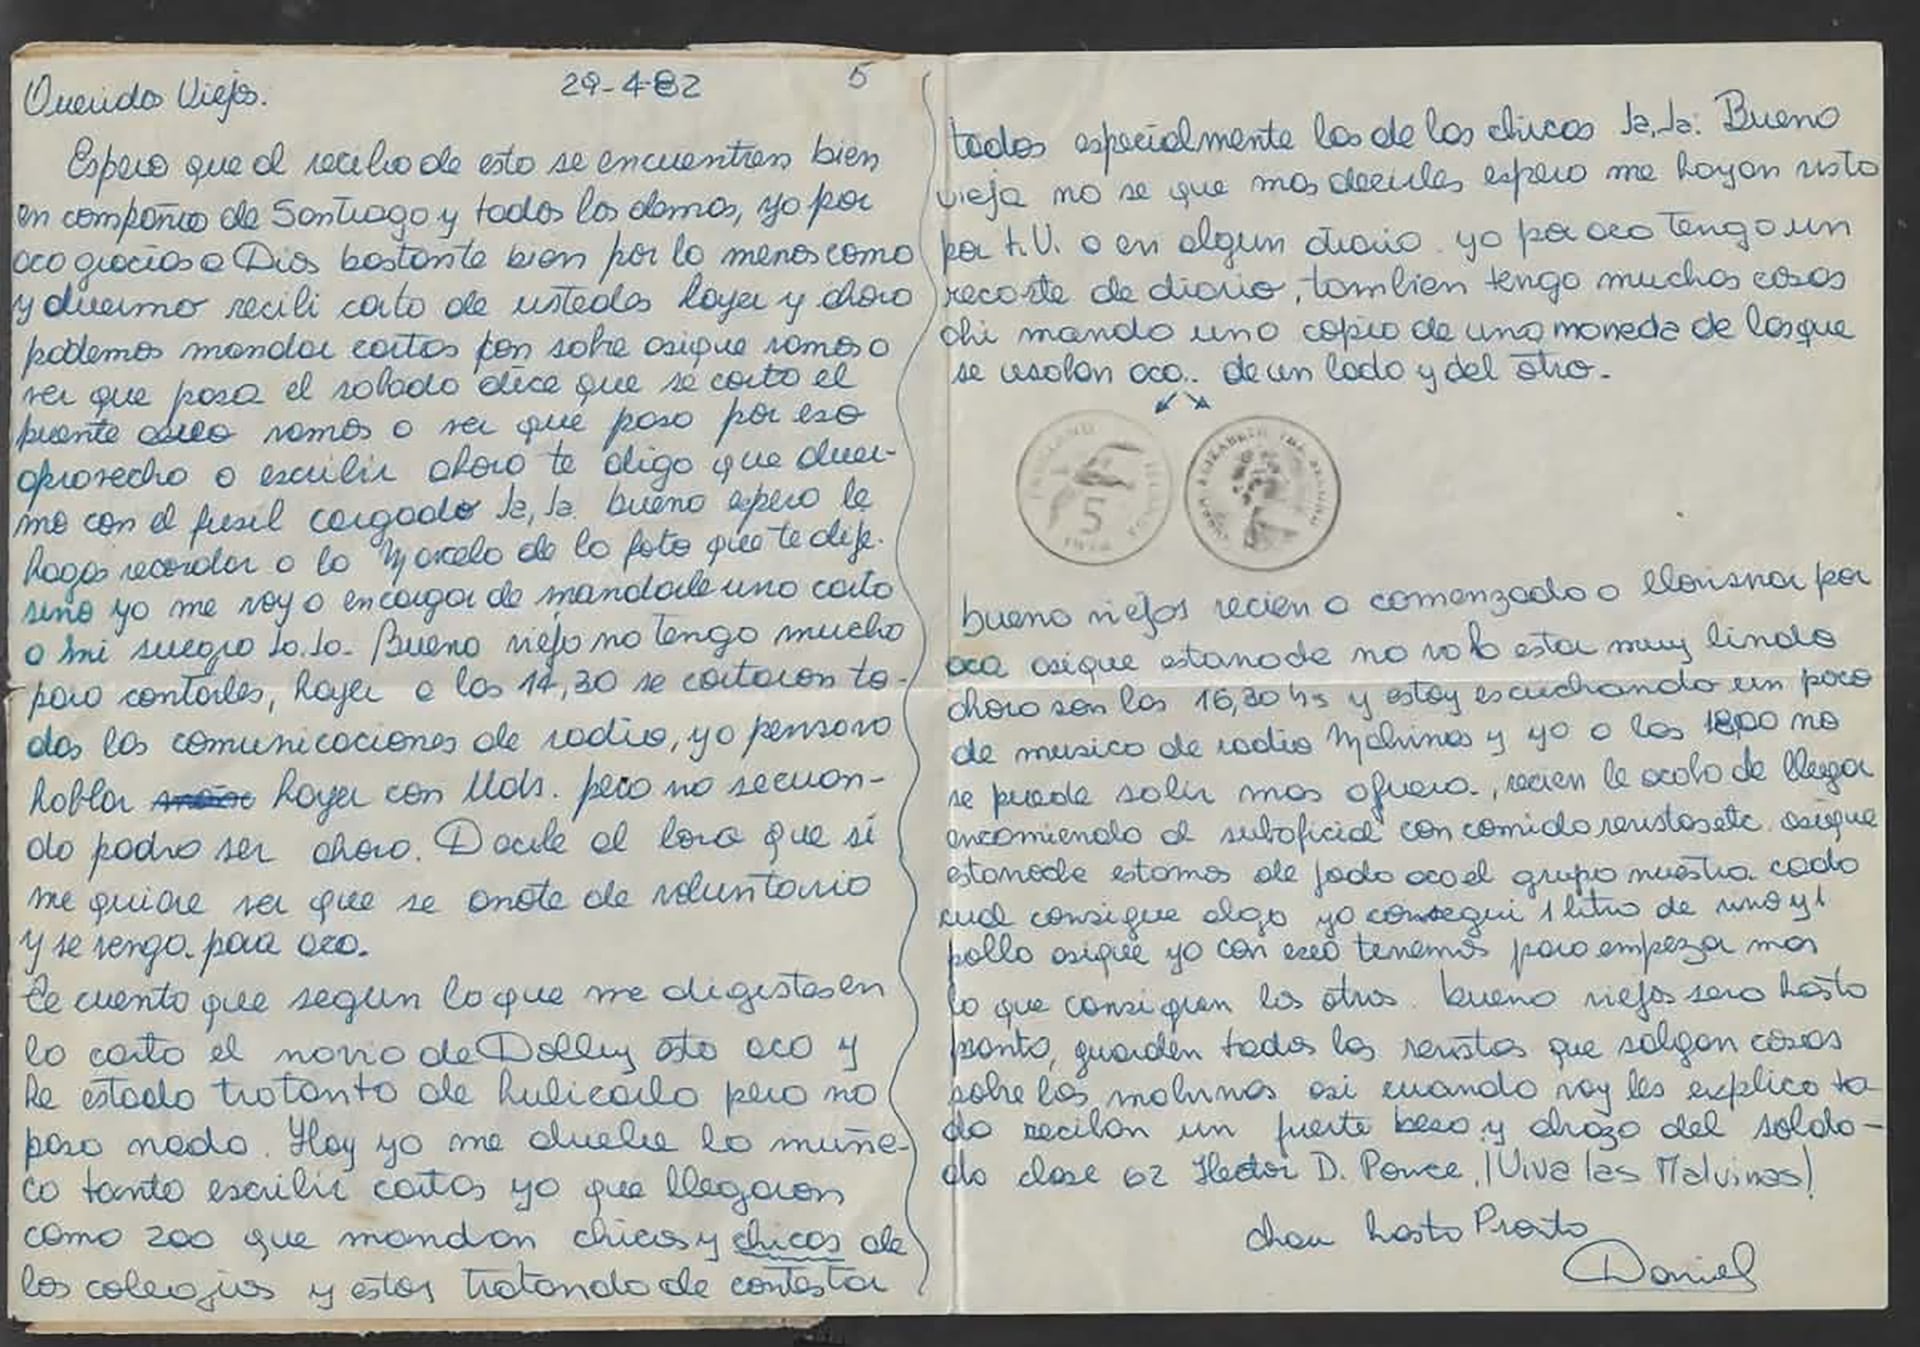 Queridos Viejos. 29-4-82 5
Espero que al recibo de esto se encuentren bien
en compañia de Santiago y todos los demas, yo por
aca gracias a Dios bastante bien por lo menos como
y duermo recibi carta de ustedes hayer y ahora
podemos mandar cartas con sobre asique vamos a
ver que pasa el sabado dice que se corto el
puente vamos a ver que paso por eso
aprovecho a escribir ahora te digo que duer-
mo con el fusil cargado Ja, Ja. bueno espero le
hagas recordar a la Marcela de la foto que te dije.
sino yo me voy a encargar de mandarle una carta
a mi suegro Ja. Ja. Bueno viejo no tengo mucho
para contarles, hayer a las 14,30 se cortaron to-
das las comunicaciones de radio, yo pensava
hablar hayer con Uds. pero no se cuan-
do podra ser ahora. Decile al loro que si
me quiere ver que se anote de voluntario
y se venga. para aca.
Te cuento que segun lo que me digistes en
la carta el novio de Dolly esta aca y
he estado tratanto de hubicarlo pero no
paso nada. Hoy yo me duele la muñe-
ca tanto escribir cartas yo que llegaron
como 200 que mandan chicos y chicas de
los colegios y estoy tratando de contestar
todas especialmente las de las chicas Ja, Ja. Bueno
vieja no se que mas decirles espero me hayan visto
por t.V. o en algun diario. yo por aca tengo un
recorte de diario, tambien tengo muchas cosas
ahi mando una copia de una moneda de las que
se usaban aca.. de un lado y del otro.
FALKLAND ISLANDS
5
1974
QUEEN ELIZABETH THE SECOND
bueno viejos recien a comenzado a lloviznar por
aca asique esta noche no va a estar muy lindo
ahora son las 16,30 hs y estoy escuchando un poco
de musica de radio Malvinas y yo a las 18,00 no
se puede salir mas afuera., recien le acaba de llegar
encomienda al suboficial con comida revistas etc. asique
esta noche estamos de joda aca el grupo nuestro. cada
cual consigue algo yo consegui 1 litro de vino y 1
pollo asique yo con eso tenemos para empezar mas
lo que consiguen los otros. bueno viejos sera hasta
pronto, guarden todas las revistas que salgan cosas
sobre las malvinas asi cuando voy les explico to-
do reciban un fuerte beso y abrazo del solda-
do clase 62 Hector D. Ponce. ¡Viva las Malvinas!
chau hasta Pronto
Daniel